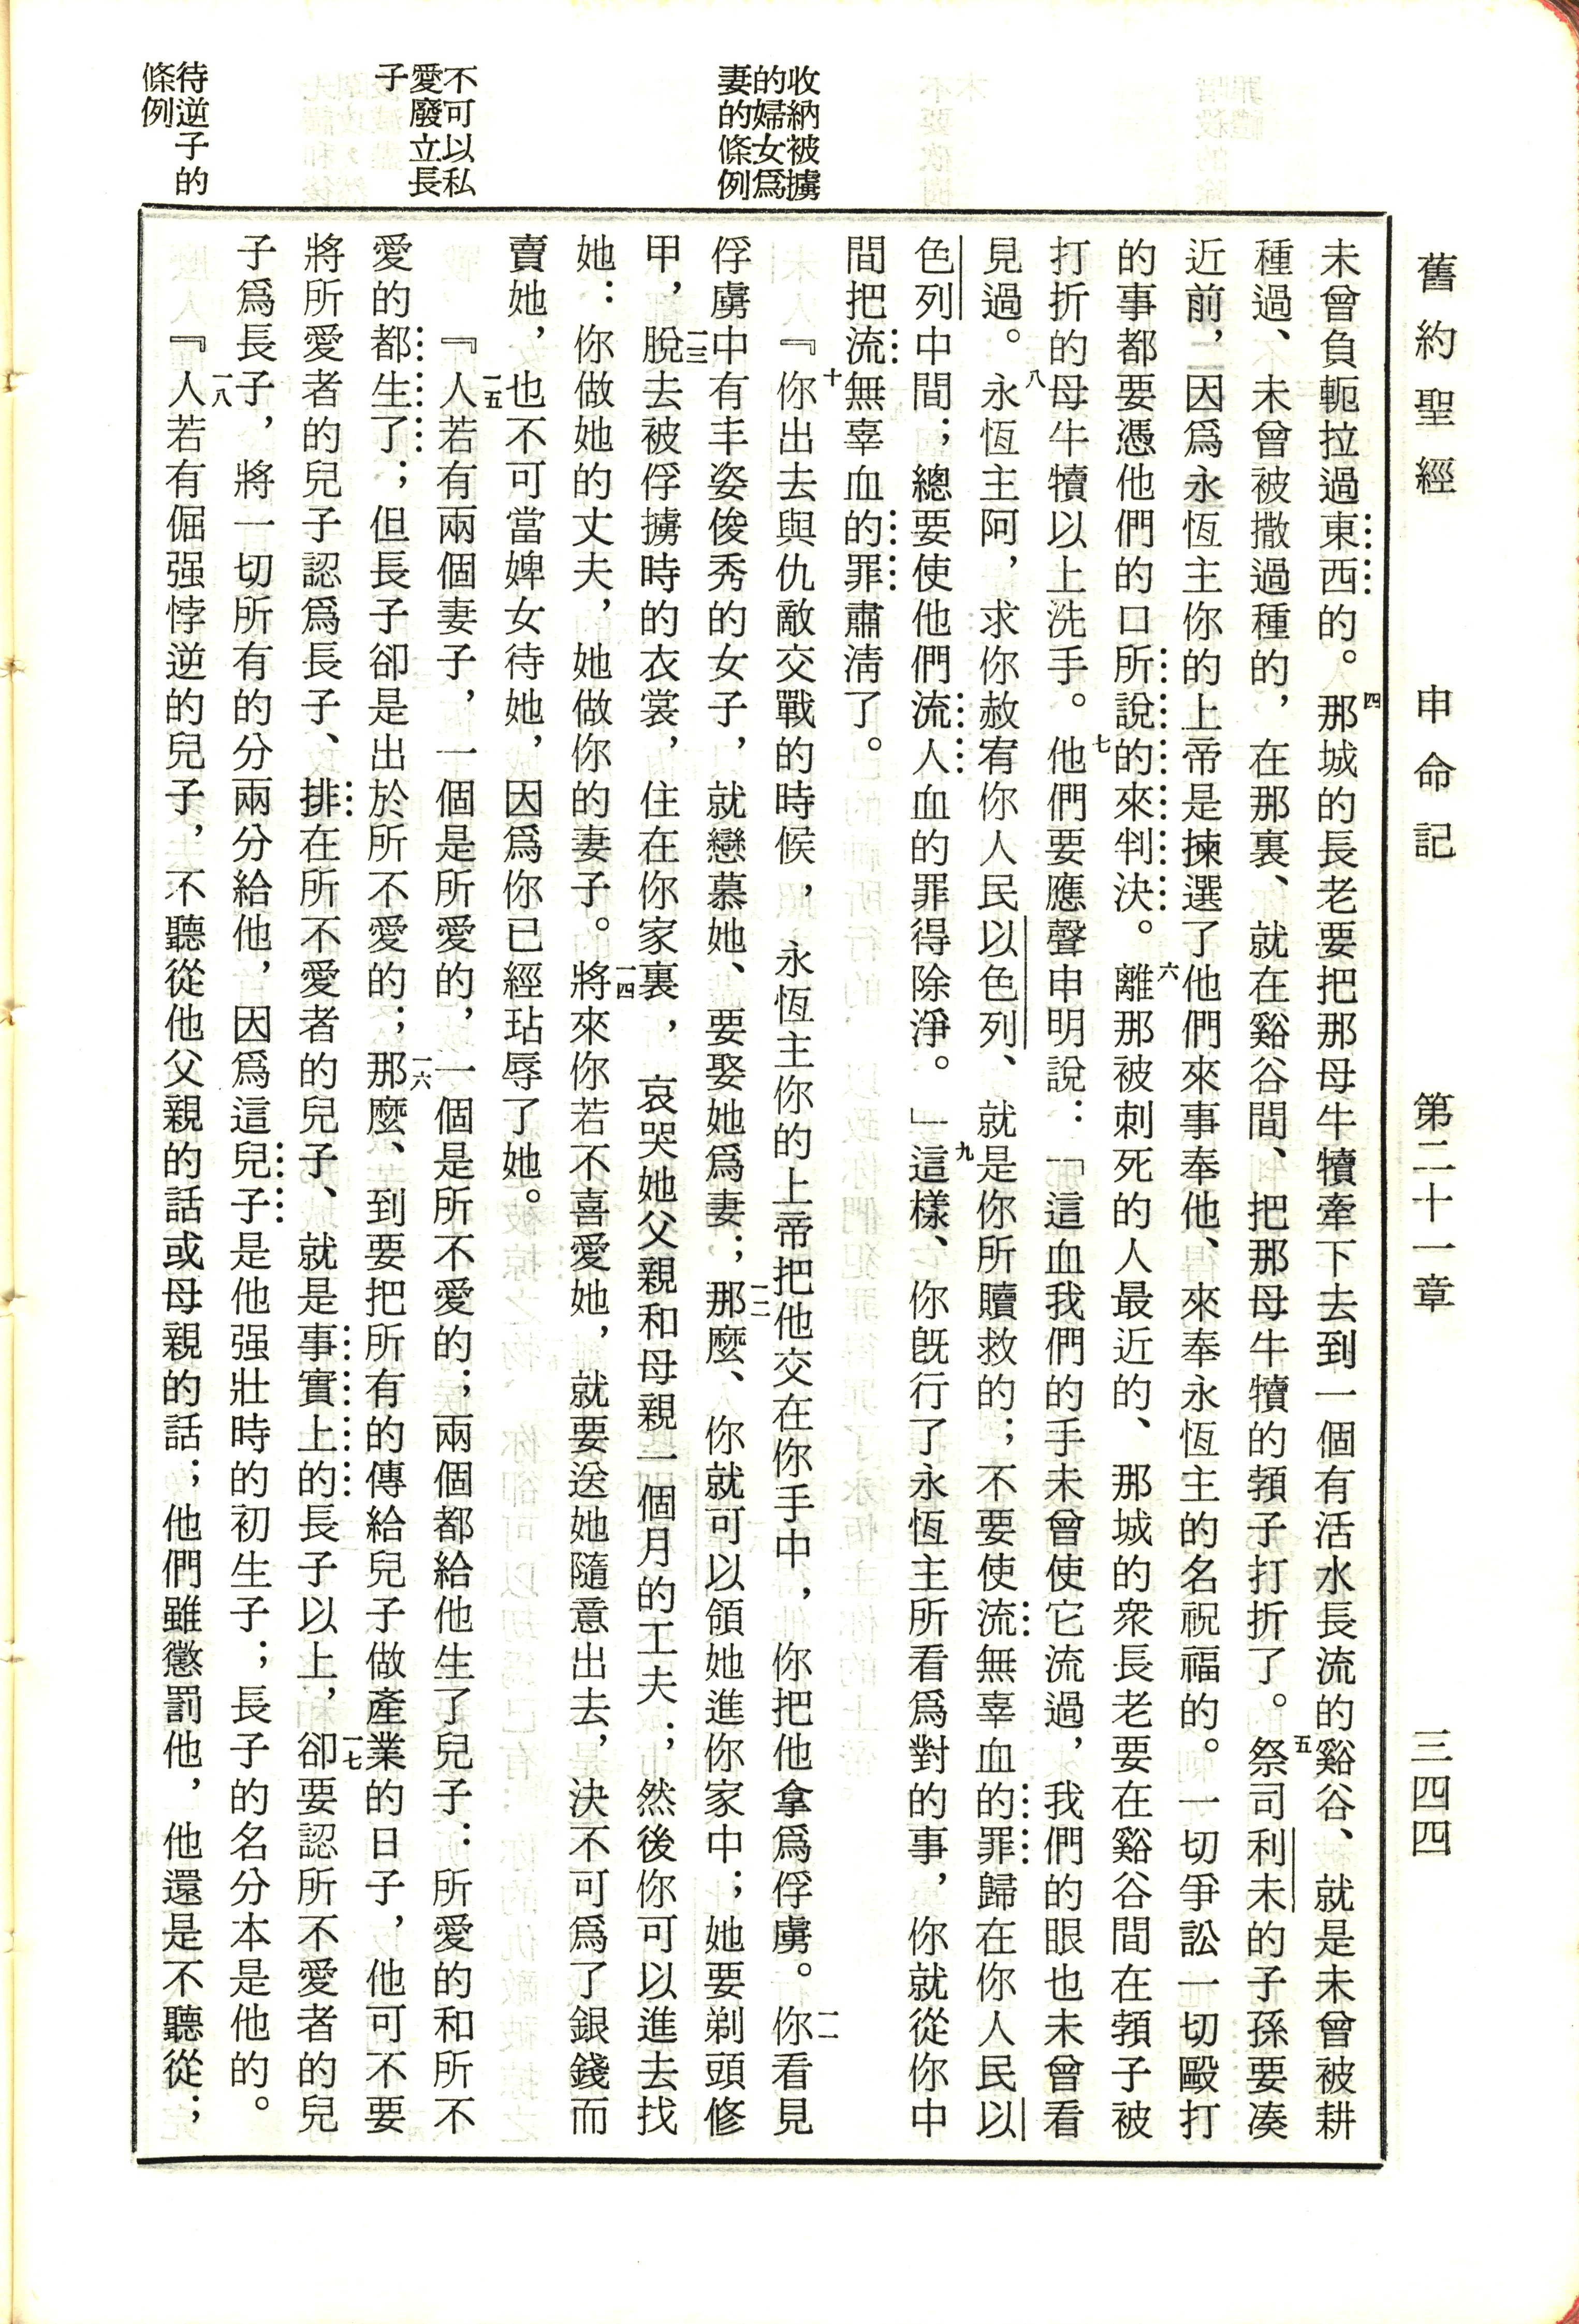 舊約聖經　申命記　第二十一章　三四四
收納被擄
的婦女爲
妻的條例
不可以私
愛廢立長
子
待逆子的
條例
未曾負軛拉過東西的。四那城的長老要把那母牛犢牽下去到一個有活水長流的谿谷、就是未曾被耕
種過、未曾被撒過種的，在那裏、就在谿谷間、把那母牛犢的頸子打折了。五祭司利未的子孫要湊
近前，因爲永恆主你的上帝是揀選了他們來事奉他、來奉永恆主的名祝福的。一切爭訟一切毆打
的事都要憑他們的口所說的來判決。六離那被刺死的人最近的、那城的衆長老要在谿谷間在頸子被
打折的母牛犢以上洗手。七他們要應聲申明說：「這血我們的手未曾使它流過，我們的眼也未曾看
見過。八永恆主阿，求你赦宥你人民以色列、就是你所贖救的；不要使流無辜血的罪歸在你人民以
色列中間；總要使他們流人血的罪得除淨。」九這樣、你旣行了永恆主所看爲對的事，你就從你中
間把流無辜血的罪肅淸了。
十『你出去與仇敵交戰的時候，永恆主你的上帝把他交在你手中，你把他拿爲俘虜。一一你看見
俘虜中有丰姿俊秀的女子，就戀慕她、要娶她爲妻；一二那麼、你就可以領她進你家中；她要剃頭修
甲，一三脫去被俘擄時的衣裳，住在你家裏，哀哭她父親和母親一個月的工夫；然後你可以進去找
她：你做她的丈夫，她做你的妻子。一四將來你若不喜愛她，就要送她隨意出去，決不可爲了銀錢而
賣她，也不可當婢女待她，因爲你已經玷辱了她。
一五『人若有兩個妻子，一個是所愛的，一個是所不愛的；兩個都給他生了兒子：所愛的和所不
愛的都生了；但長子卻是出於所不愛的；一六那麼、到要把所有的傳給兒子做產業的日子，他可不要
將所愛者的兒子認爲長子、排在所不愛者的兒子、就是事實上的長子以上，一七卻要認所不愛者的兒
子爲長子，將一切所有的分兩分給他，因爲這兒子是他强壯時的初生子；長子的名分本是他的。
一八『人若有倔强悖逆的兒子，不聽從他父親的話或母親的話；他們雖懲罰他，他還是不聽從；